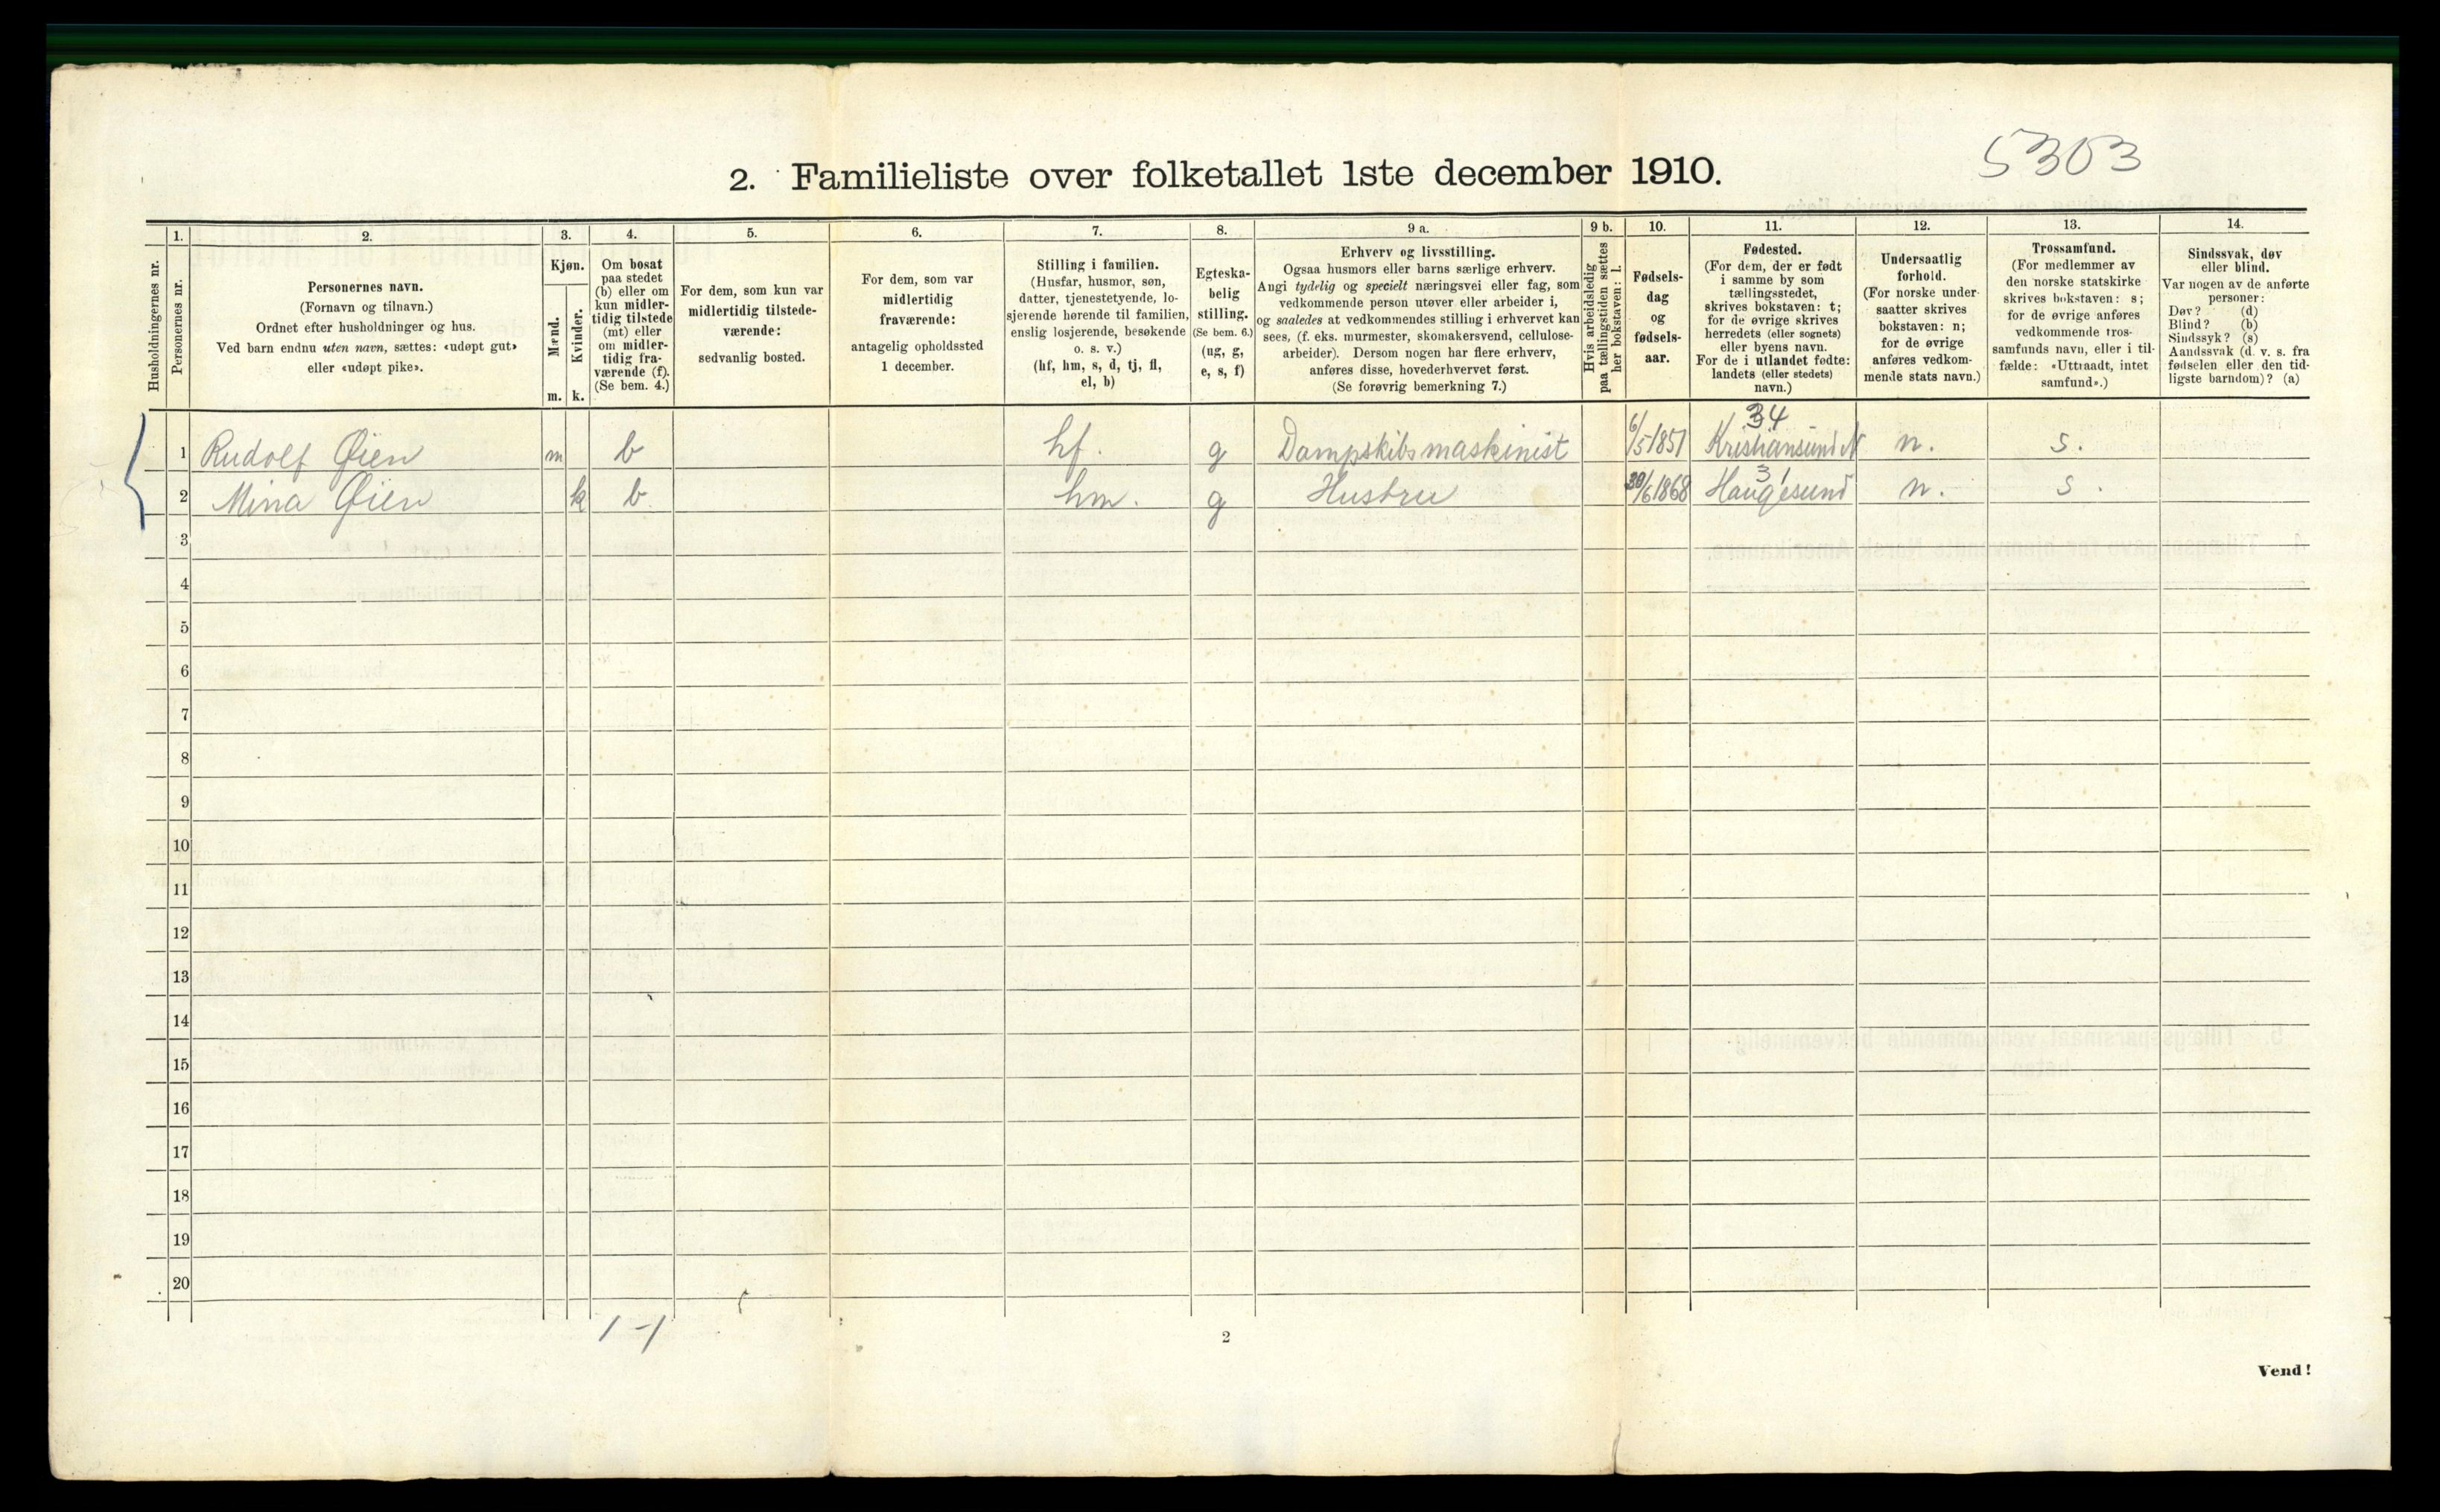 5303
2. Familieliste over folketallet 1ste december 1910.
Husholdningernes nr.
1.
Personernes nr.
2.
Personernes navn.
(Fornavn og tilnavn.)
Ordnet efter husholdninger og hus.
Ved barn endnu uten navn, sættes: «udøpt gut»
eller «udøpt pike».
3.
Kjøn.
Mænd.
Kvinder.
m. k.
4.
Om bosat
paa stedet
(b) eller om
kun midler-
tidig tilstede
(mt) eller
om midler-
tidig fra-
værende (f).
(Se bem. 4.)
5.
For dem, som kun var
midlertidig tilstede-
værende:
sedvanlig bosted.
6.
For dem, som var
midlertidig
fraværende:
antagelig opholdssted
1 december.
7.
Stilling i familien.
(Husfar, husmor, søn,
datter, tjenestetyende, lo-
sjerende hørende til familien,
enslig losjerende, besøkende
o. s. v.)
(hf, hm, s, d, tj, fl,
el, b)
8.
Egteska-
belig
stilling.
(Se bem. 6.)
(ug, g,
e, s, f)
9 a.
Erhverv og livsstilling.
Ogsaa husmors eller barns særlige erhverv.
Angi tydelig og specielt næringsvei eller fag, som
vedkommende person utøver eller arbeider i,
og saaledes at vedkommendes stilling i erhvervet kan
sees, (f. eks. murmester, skomakersvend, cellulose-
arbeider). Dersom nogen har flere erhverv,
anføres disse, hovederhvervet først.
(Se forøvrig bemerkning 7.)
9 b.
Hvis arbeidsledig
paa tællingstiden sættes
her bokstaven: l.
10.
Fødsels-
dag
og
fødsels-
aar.
11.
Fødested.
(For dem, der er født
i samme by som
tællingsstedet,
skrives bokstaven: t;
for de øvrige skrives
herredets (eller sognets)
eller byens navn.
For de i utlandet fødte:
landets (eller stedets)
navn.)
12.
Undersaatlig
forhold.
(For norske under-
saatter skrives
bokstaven: n;
for de øvrige
anføres vedkom-
mende stats navn.)
13.
Trossamfund.
(For medlemmer av
den norske statskirke
skrives bokstaven: s;
for de øvrige anføres
vedkommende tros-
samfunds navn, eller i til-
fælde: «Uttraadt, intet
samfund».)
14.
Sindssvak, døv
eller blind.
Var nogen av de anførte
personer:
Døv? (d)
Blind? (b)
Sindssyk? (s)
Aandssvak (d. v. s. fra
fødselen eller den tid-
ligste barndom)? (a)
34
1 Rudolf Øien m b hf. g Dampskibsmaskinist 6/5 1851 Kristiansund N n. s.
31
2 Mina Øien k b. hm. g Hustru 30/6 1868 Haugesund n. s.
3
4
5
6
7
8
9
10
11
12
13
14
15
16
17
18
19
20
1-1
2
Vend!